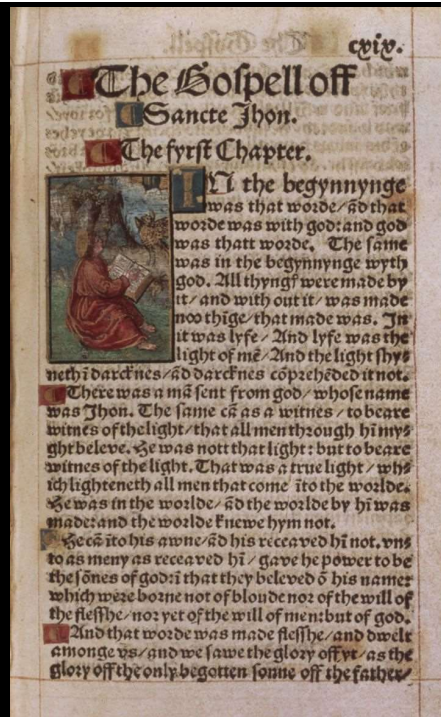 cxix.
The Gospell off
Sancte Jhon.
The fyrst Chapter.
IN the begynnynge
was that worde/ ād that
worde was with god: and god
was thatt worde. The same
was in the begynnynge wyth
god. All thyngſ were made by
it/ and with out it/ was made
noo thīge/ that made was. In
it was lyfe/ And lyfe was the
light of mē/ And the light shys
neth ī darcknes/ ād darcknes cōprehēded it not.
There was a mā sent from god/ whose name
was Jhon. The same cā as a witnes/ to beare
witnes of the light/ that all men through hī mys
ght beleve. He was nott that light: but to beare
witnes of the light. That was a true light/ whs
ich lighteneth all men that come īto the worlde.
He was in the worlde/ ād the worlde by hī was
made: and the worlde knewe hym not.
He cā īto his awne/ ād his receaved hī not. vns
to as meny as receaved hī/ gave he power to be
the sōnes of god: ī that they beleved ō his name:
which were borne not of bloude nor of the will of
the flesshe/ nor yet of the will of men: but of god.
And that worde was made flesshe/ and dwelt
amonge vs/ and we sawe the glory off yt/ as the
glory off the only begotten sonne off the father/